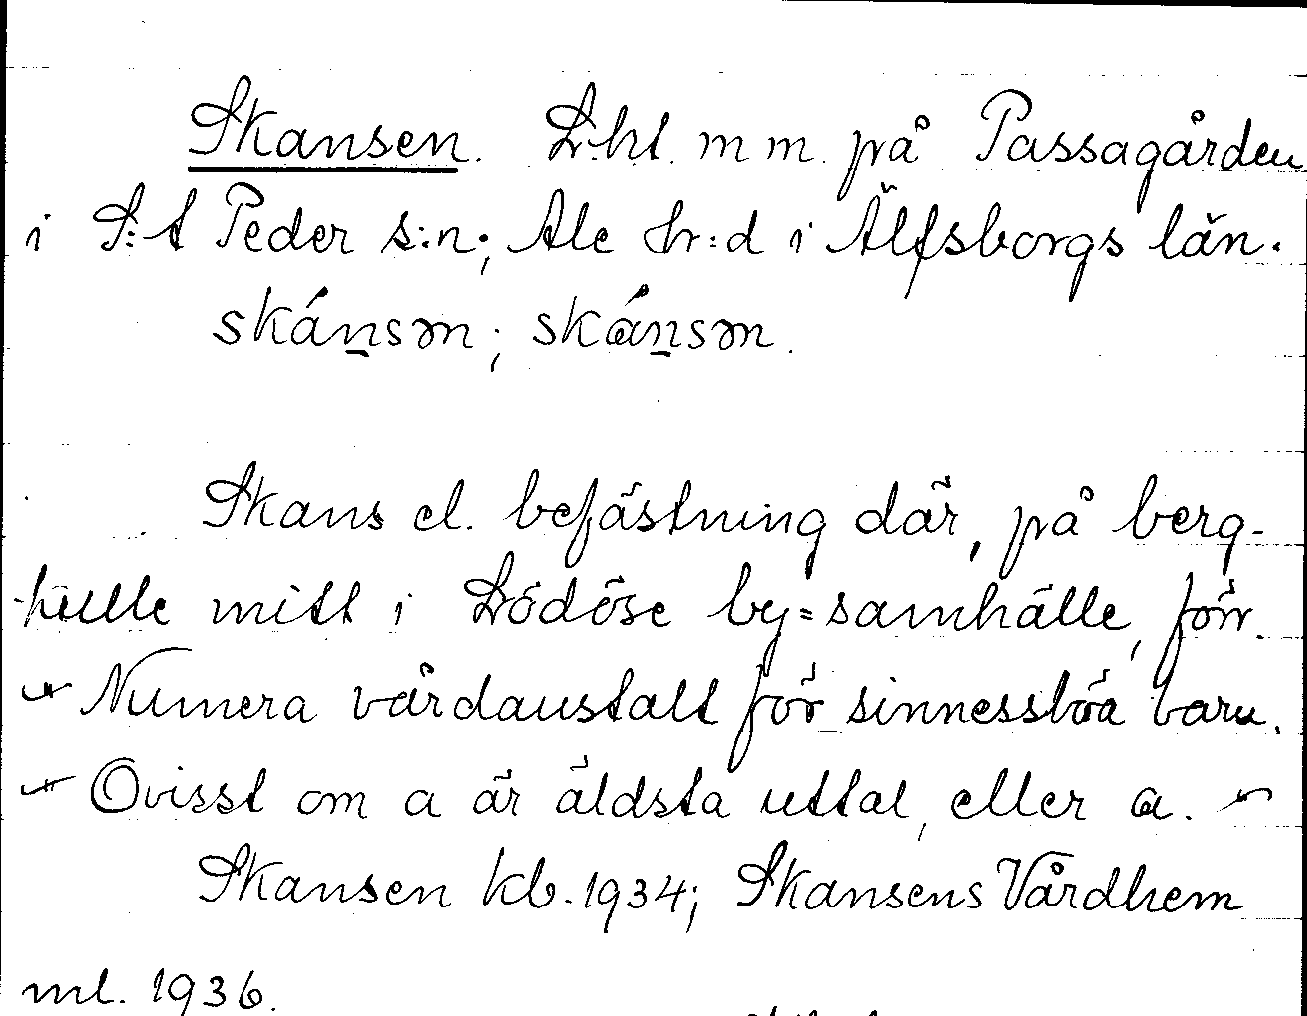 Skansen. Lht. m m. på Passagården
i S:t Peder s:n; Ale hr:d i Älfsborgs län.
skánsən; skánsən.
Skans el. befästning där, på berg-
kulle mitt i Lödöse by=samhälle, förr.
Numera vårdanstalt för sinnesslöa barn.
Ovisst om a är äldsta uttal, eller a.
Skansen kb. 1934; Skansens Vårdhem
ml. 1936.